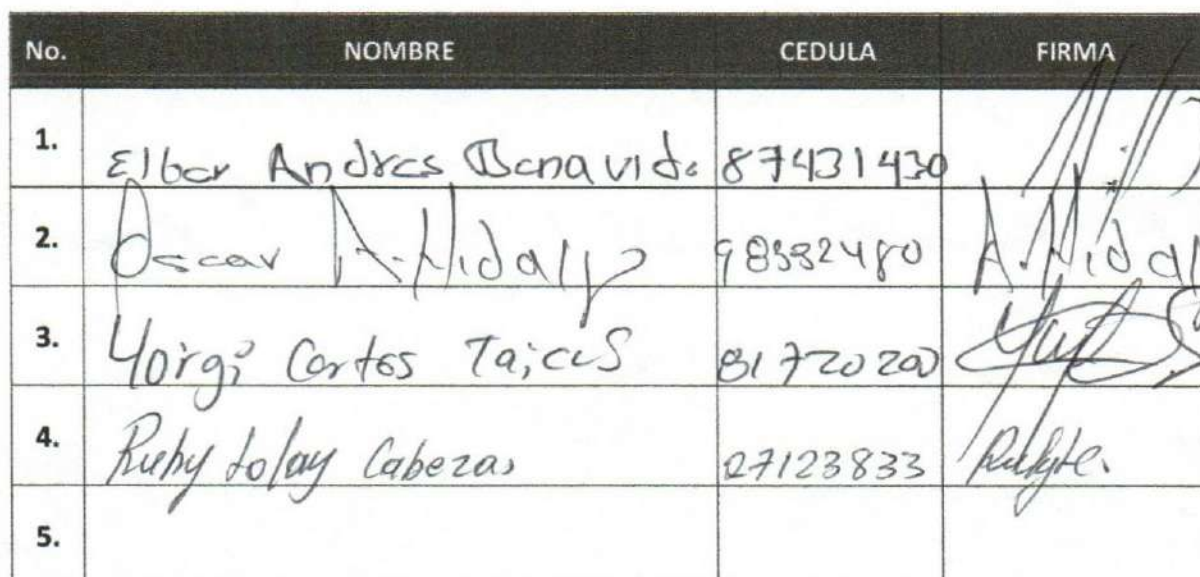 No. NOMBRE CEDULA FIRMA
1. Elber Andres Benavide 87431430
2. Oscar A. Hidalgo 98382480 A. Hidal
3. Yorgi Cortes Taicus 81720200
4. Ruby tolay Cabezas 27123833
5.